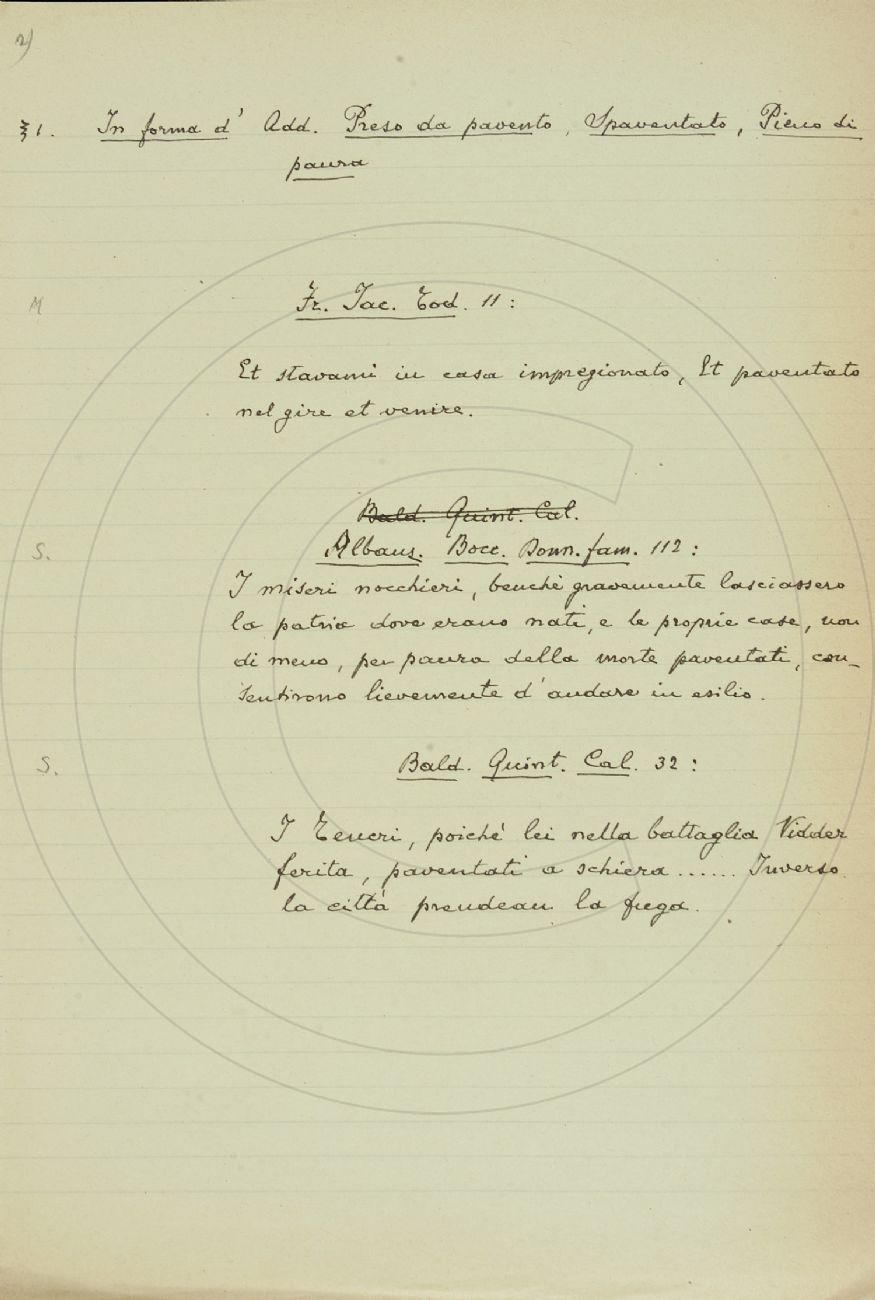 2)
§ 1. In forma d' Add. Preso da pavento, Spaventato, Pieno di
paura
M
Fr. Jac. Tod. 11 :
Et stavami in casa impregionato, Et paventato
nel gire et venire.
Bald. Quint. Cal.
S. Albans. Bocc. Donn. fam. 112 :
I miseri nocchieri, benchè gravemente lasciassero
la patria dove erano nati, e le proprie case, non
di meno, per paura della morte paventati, con_
sentirono lievemente d'andare in esilio.
S. Bald. Quint. Cal. 32 :
I Teucri, poichè lei nella battaglia Vidder
ferita, paventati a schiera ...... Inverso
la città prendean la fuga.